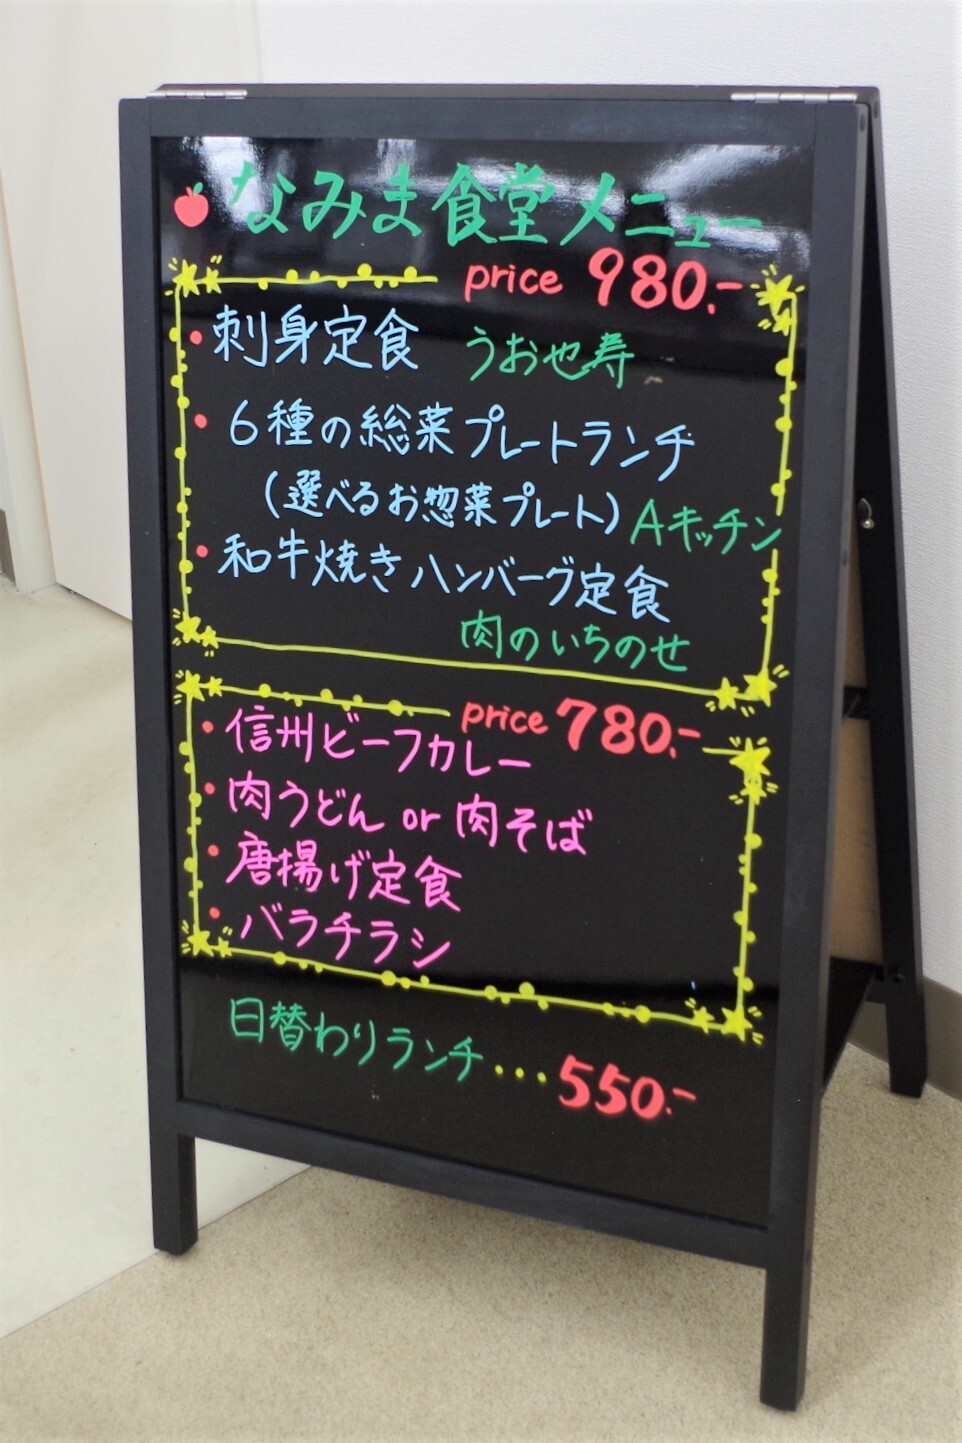 なみま食堂メニュー
price 980.-
・刺身定食 うお也寿
・6種の総菜プレートランチ
(選べるお惣菜プレート) Aキッチン
・和牛焼きハンバーグ定食
肉のいちのせ
price 780.-
・信州ビーフカレー
・肉うどん or 肉そば
・唐揚げ定食
・バラチラシ
日替わりランチ・・・550.-